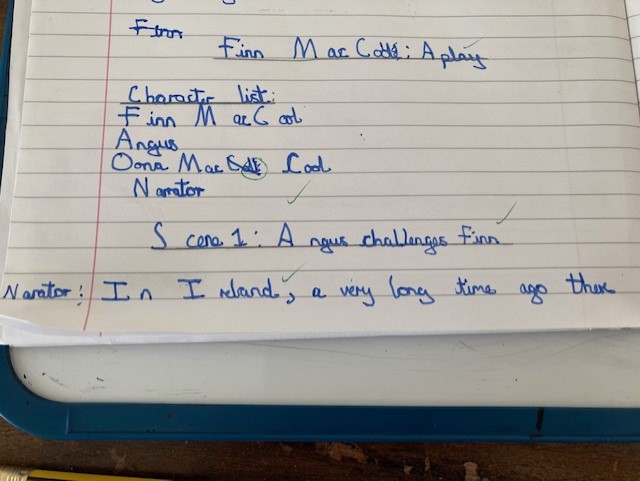 Finn
Finn MacCool: A play
Character list:
Finn MacCool
Angus
Oona Mac Cool
Narrator
Scene 1: Angus challenges Finn
Narrator: In Ireland, a very long time ago there